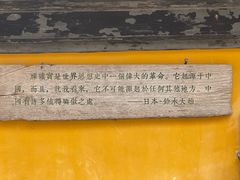 禪確實是世界思想史中一個偉大的革命。它起源于中
國，而且，就我看來，它不可能源起於任何其他地方。中
國有許多值得驕傲之處。
———日本·鈴木大拙